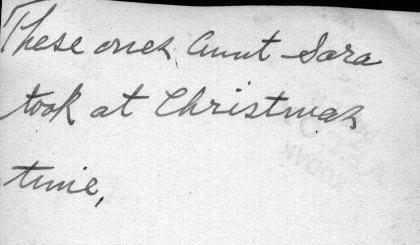 These ones Aunt Sara
took at Christmas
time,
KODAK